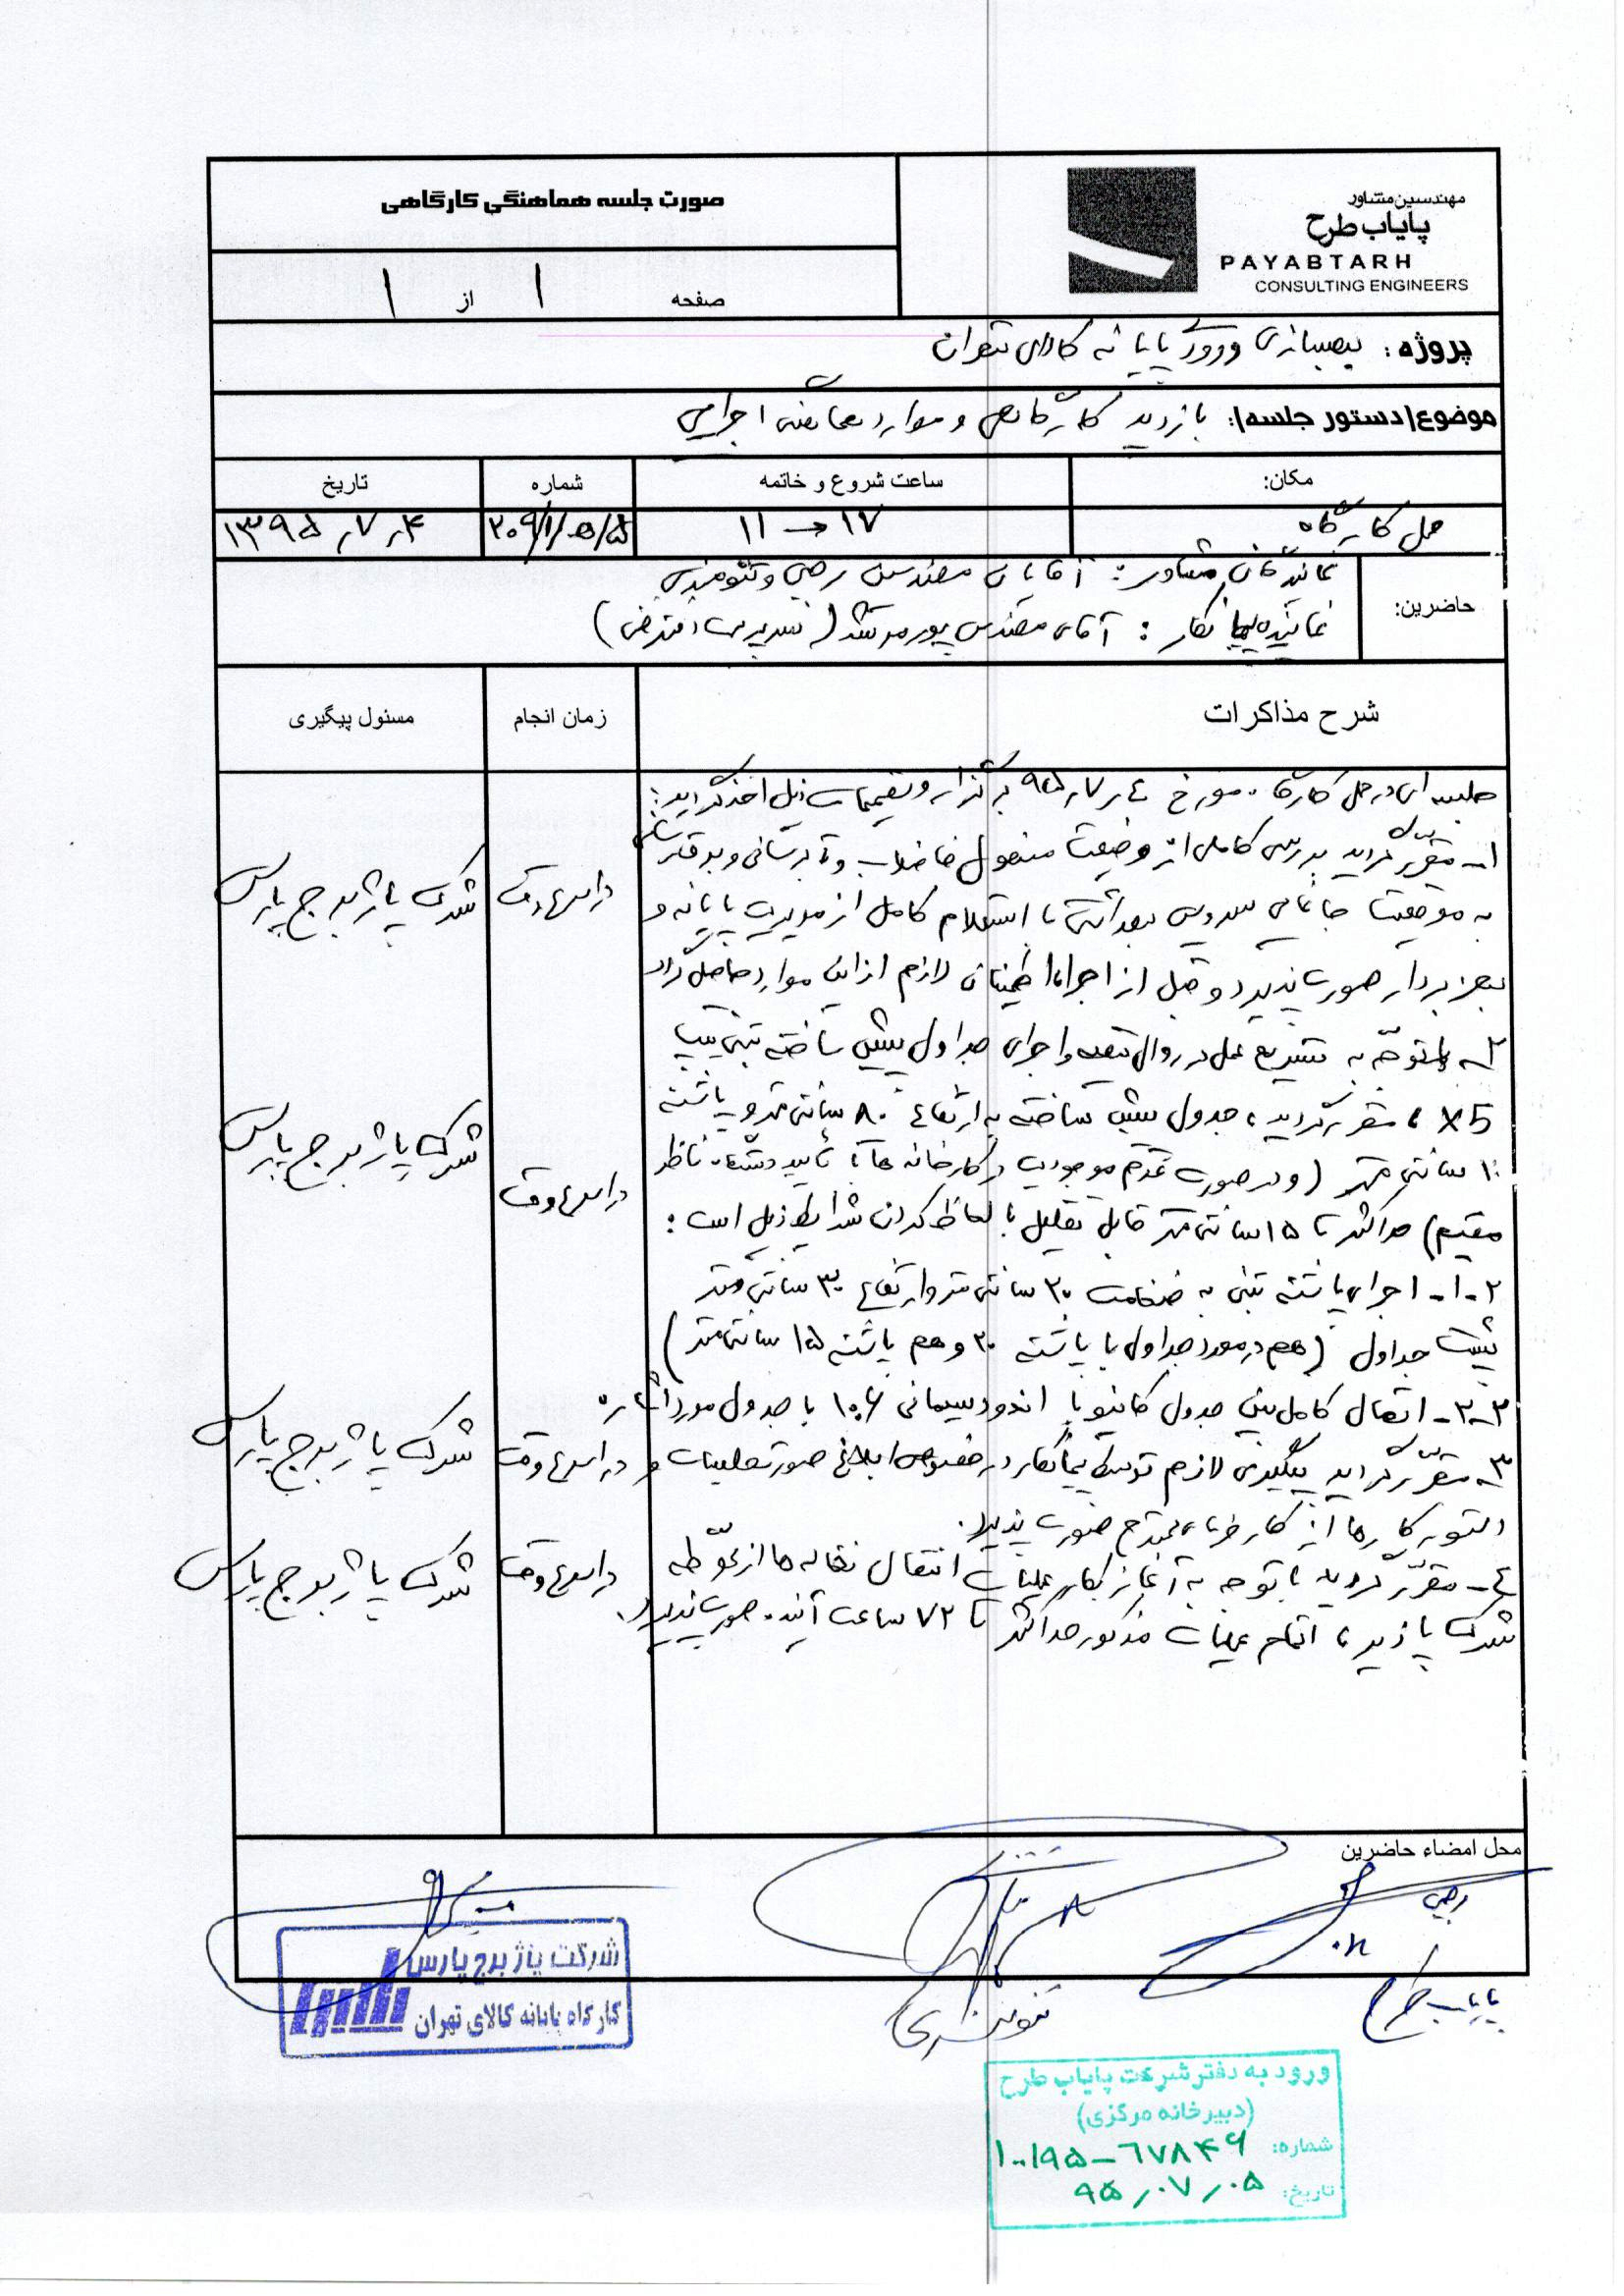 صورت جلسه هماهنگی کارگاهی
مهندسین مشاور
پایاب طرح
PAYABTARH
CONSULTING ENGINEERS
صفحه ۱ از ۱
پروژه: بهسازی ورودی پایانه کالای تهران
موضوع/دستور جلسه: بازدید کارگاهی و موارد اجرایی
مکان: ساعت شروع و خاتمه شماره تاریخ
محل کارگاه ۱۷ → ۱۱ ۱۳۹۵٫۷٫۴
حاضرین: نمایندگان مشاور: آقایان مهندسین رجبی و تنومندی
نماینده پیمانکار: آقای مهندس پورمرشد
شرح مذاکرات زمان انجام مسئول پیگیری
جلسه ای در محل کارگاه مورخ ۹۵٫۷٫۴ برگزار و تصمیمات ذیل اخذ گردید:
۱- مقرر گردید بررسی کاملی از وضعیت منهول فاضلاب و تأبرسانی و برقرسانی
به موقعیت جانمایی سرویس بهداشتی با استعلام کامل از مدیریت پایانه و
بهره بردار صورت پذیرد و قبل از اجرا اطمینان لازم از این موارد حاصل گردد
در اسرع وقت شرکت پاژ برج پارس
۲- با توجه به تسریع عمل در روال تهیه و اجرای جداول پیش ساخته بتنی تیپ
، مقرر گردید، جدول پیش ساخته به ارتفاع ۸۰ سانتی متر و پاشنه
سانتی متر (و در صورت عدم موجودیت در کارخانه ها با تأیید دستگاه ناظر
مقیم) حداکثر تا ۱۵ سانتی متر قابل تقلیل با لحاظ کردن شرایط ذیل است:
در اسرع وقت شرکت پاژ برج پارس
۲-۱- اجرای پاشنه بتنی به ضخامت ۲۰ سانتی متر و ارتفاع ۳۰ سانتی متر
پشت جداول (هم در مورد جداول با پاشنه ۲۰ و هم پاشنه ۱۵ سانتی متر)
۲-۲- اتصال کامل بین جدول کانیو با اندود سیمانی با جدول مورد اشاره
۳- مقرر گردید پیگیری لازم توسط پیمانکار در خصوص ابلاغ صورتجلسات و
دستور کارها از کارفرمای محترم صورت پذیرد.
در اسرع وقت شرکت پاژ برج پارس
۴- مقرر گردید با توجه به آغاز بکار عملیات انتقال نخاله ها از محوطه
شرکت پاژیر، اتمام عملیات مذکور حداکثر تا ۷۲ ساعت آینده صورت پذیرد.
در اسرع وقت شرکت پاژ برج پارس
محل امضاء حاضرین
رجبی
پایاب طرح
تنومندی
شرکت پاژ برج پارس
کارگاه پایانه کالای تهران
ورود به دفتر شرکت پایاب طرح
(دبیرخانه مرکزی)
شماره: ۱۰۰/۹۵-۶۷۸۴۶
تاریخ: ۹۵٫۰۷٫۰۵